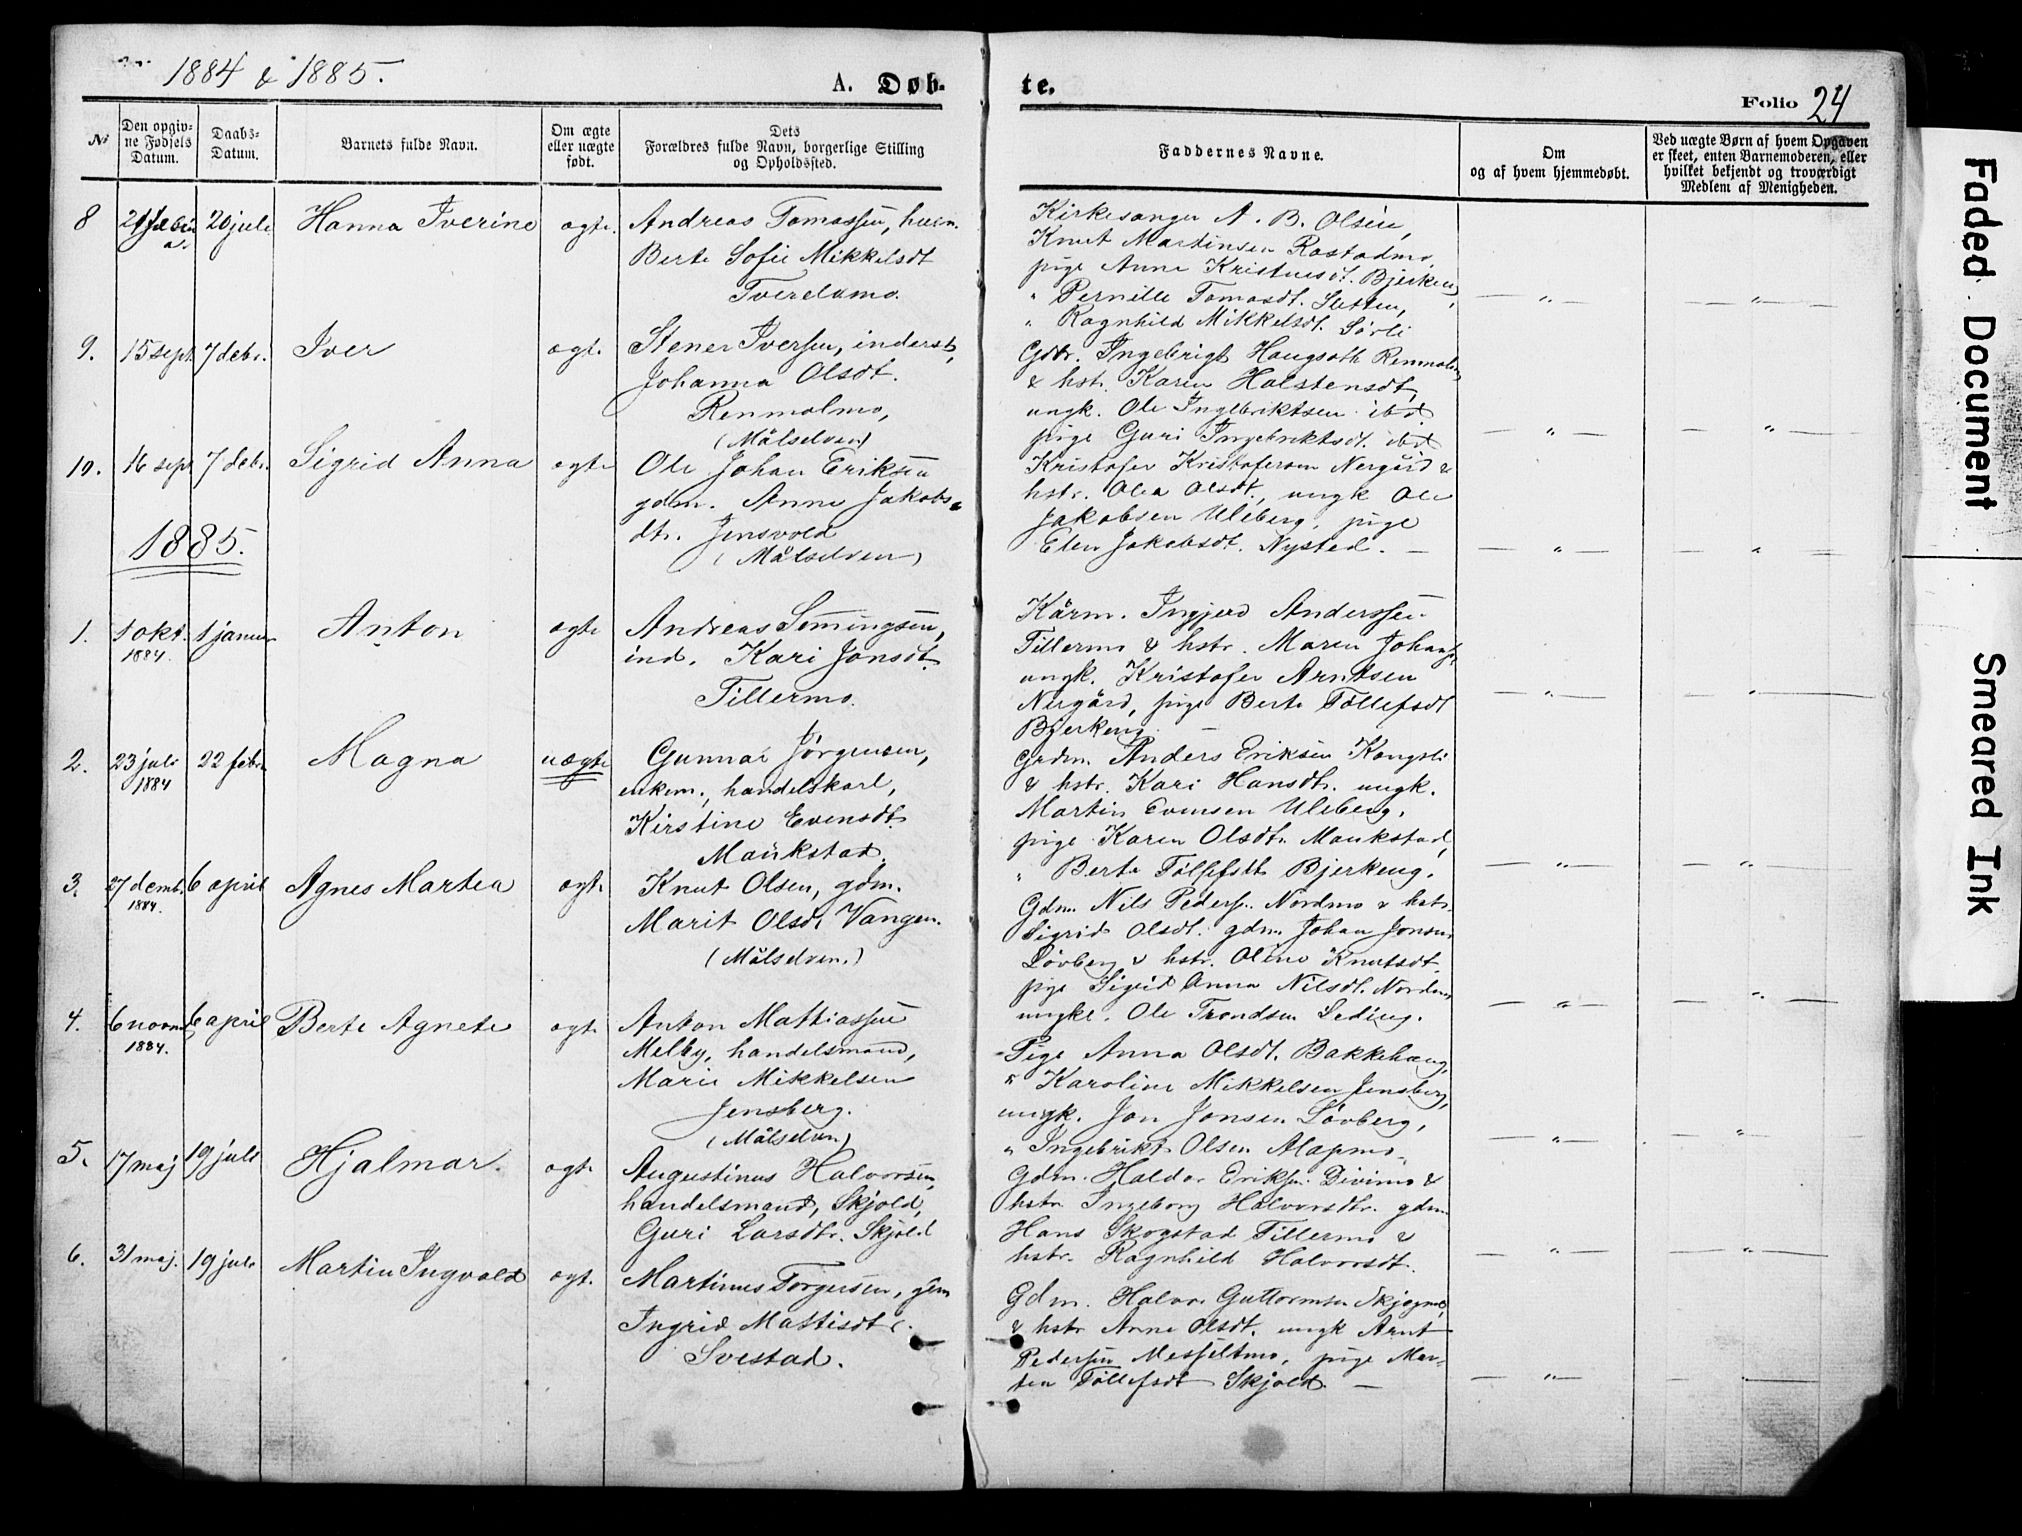 1884 & 1885.
A. Døb-
te.
Folio 24
No
Den opgiv-
ne Fødsels
Datum.
Daabs-
Datum.
Barnets fulde Navn.
Om ægte
eller uægte
født.
Dets
Forældres fulde Navn, borgerlige Stilling
og Opholdssted.
Faddernes Navne.
Om
og af hvem hjemmedøbt.
Ved uægte Børn af hvem Opgaven
er skeet, enten Barnemoderen, eller
hvilket bekjendt og troværdigt
Medlem af Menigheden.
8 20 juli Hanna Iverine ægte.
Andreas Tomassen,
Berte Sofie Mikkelsdt
Tverelvmo.
Kirkesanger A. B. Olsen,
Knut Martinsen Rostadmo,
pige Anne Bjerkeng
" Pernille Tomasdt. Sletten,
" Ragnhild Mikkelsdt. Sørli
9. 15 sept. 7 debr. Iver ægt.
Stener Iversen, inderst,
Johanna Olsdt.
Renmolmo,
(Målselven)
Gdbr. Ingebrigt Haugseth
& hstr. Karen Halstensdt,
ungk. Ole Ingebriktsen ibid
pige Guri Ingebriktsdt. ibid
10. 16 sept 7 debr. Sigrid Anna ægte
Ole Johan Eriksen
gdm. Anne Jakobs-
dtr. Jensvold
(Målselven)
Kristofer Kristofersen Nergård &
hstr. Olea Olsdt., ungk Ole
Jakobsen Uleberg, pige
Elen Jakobsdt. Nysted. —
1885.
1. 1 okt. 1884. 1 januar Anton ægte
Andreas Simingsen,
ind. Kari Jonsdt.
Tillermo.
Kårm. Ingjerd Anderssen
Tillermo & hstr. Maren
ungk. Kristofer Arntsen
Nergård, pige Berte Tollefsdt
Bjerkeng. —
2. 23 juli 1884 22 febr Magna uægte
Gunnar Jörgensen,
enkem., handelskarl,
Kirstine Evensdt.
Maukstad.
Grdm. Anders Eriksen Kongsli
& hstr. Kari Hansdtr. ungk.
Martin Evensen Uleberg,
pige Karen Olsdtr. Maukstad,
" Berte Tollefsdt Bjerkeng.
3. 27 decmb. 1884. 6 april Agnes Martea ægt.
Knut Olsen, gdm.
Marit Olsdt Vangen.
(Målselven.)
Gdm. Nils Peders. Nordmo & hstr.
Sigrid Olsdt. gdm. Johan Jonsen
Lövberg & hstr. Oline Knutsdt.
pige Sigrid Anna Nilsdt. Nordmo
ungk. Ole Trondsen
4. 6 novm 1884. 6 april Berte Agnete ægt.
Anton Mathiassen
Melby, handelsmand,
Marie Mikkelsen
Jensberg.
(Målselven)
Pige Anna Olsdt. Bakkehaug,
" Karoline Mikkelsen Jensberg,
ungk. Jon Jonsen Lövberg,
" Ingebrikt Olsen Alapmo.
5. 17 maj 19 juli Hjalmar. ægt.
Augustinus Halvorsen,
handelsmand, Skjold,
Guri Larsdtr. Skjold
Gdm. Haldor Eriksen Divimo &
hstr. Ingeborg Halvorsdtr. gdm
Hans Skogstad Tillermo &
hstr. Ragnhild Halvorsdt.
6. 31 maj. 19 juli Martin Ingvald ægt.
Martinus Torgersen,
Ingrid Mattisdt.
Svestad.
Gdm. Halvor Guttormsen
& hstr Anne Olsdt. ungk Arnt
Pedersen Messeltmo, pige Mar-
ten Tollefsdt Skjold. —
Faded Document
Smeared Ink